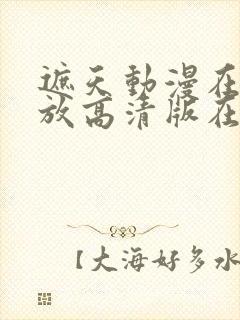 遮天動漫在
放高清版在
【大海好多水